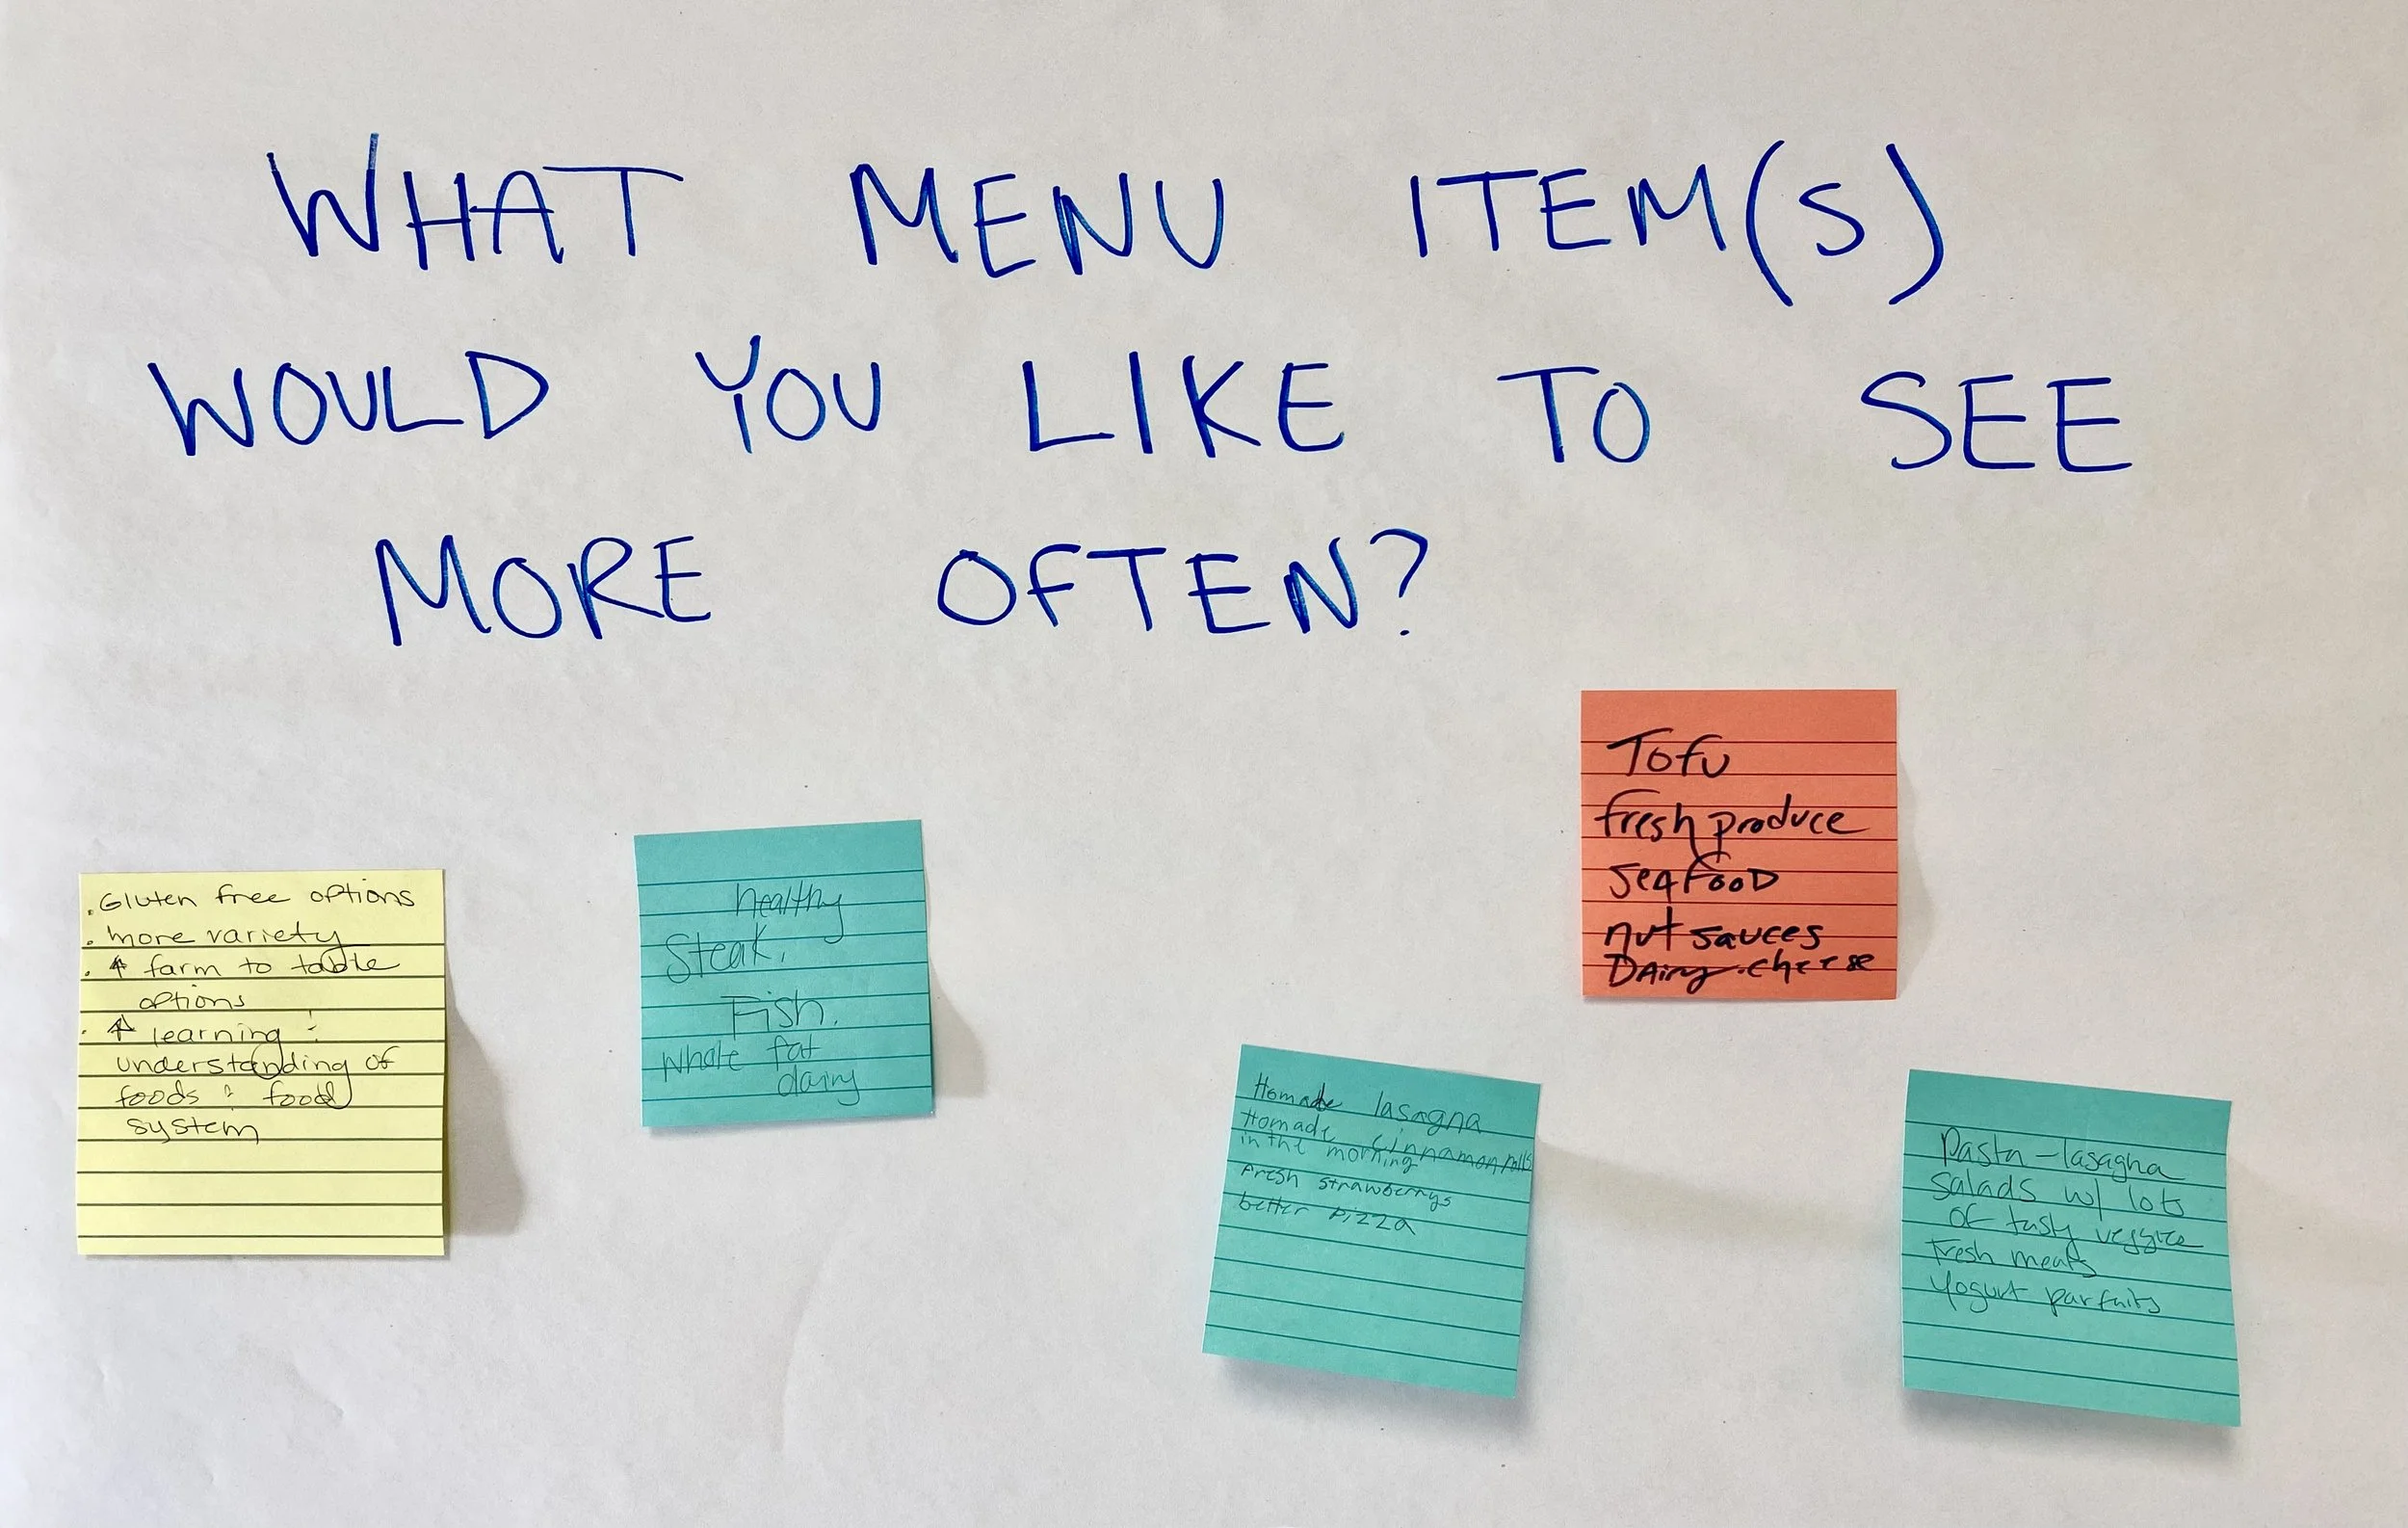 WHAT MENU ITEM(S)
WOULD YOU LIKE TO SEE
MORE OFTEN?
. Gluten free options
. more variety
. ↑ farm to table
options
. ↑ learning &
understanding of
foods & food
system
healthy
Steak.
Fish.
Whole fat
dairy
Tofu
fresh produce
seafooD
nut sauces
DAiry-cheese
Homade lasagna
Homade cinnamon rolls
in the morning
Fresh strawberrys
better pizza
Pasta - lasagna
Salads w/ lots
of tasty veggies
Fresh meats
Yogurt parfaits